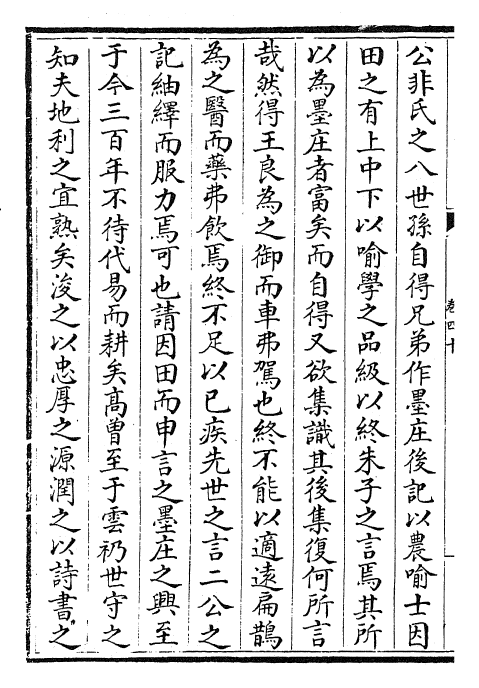 公非氏之八世孫自得兄弟作墨庄後記以農喻士因
田之有上中下以喻學之品級以終朱子之言焉其所
以為墨庄者富矣而自得又欲集識其後集復何所言
哉然得王良為之御而車弗駕也終不能以適逺扁鵲
為之醫而藥弗飲焉終不足以已疾先世之言二公之
記紬繹而服力焉可也請因田而申言之墨庄之興至
于今三百年不待代易而耕矣髙曽至于雲礽世守之
知夫地利之宜熟矣浚之以忠厚之源潤之以詩書之
卷四十